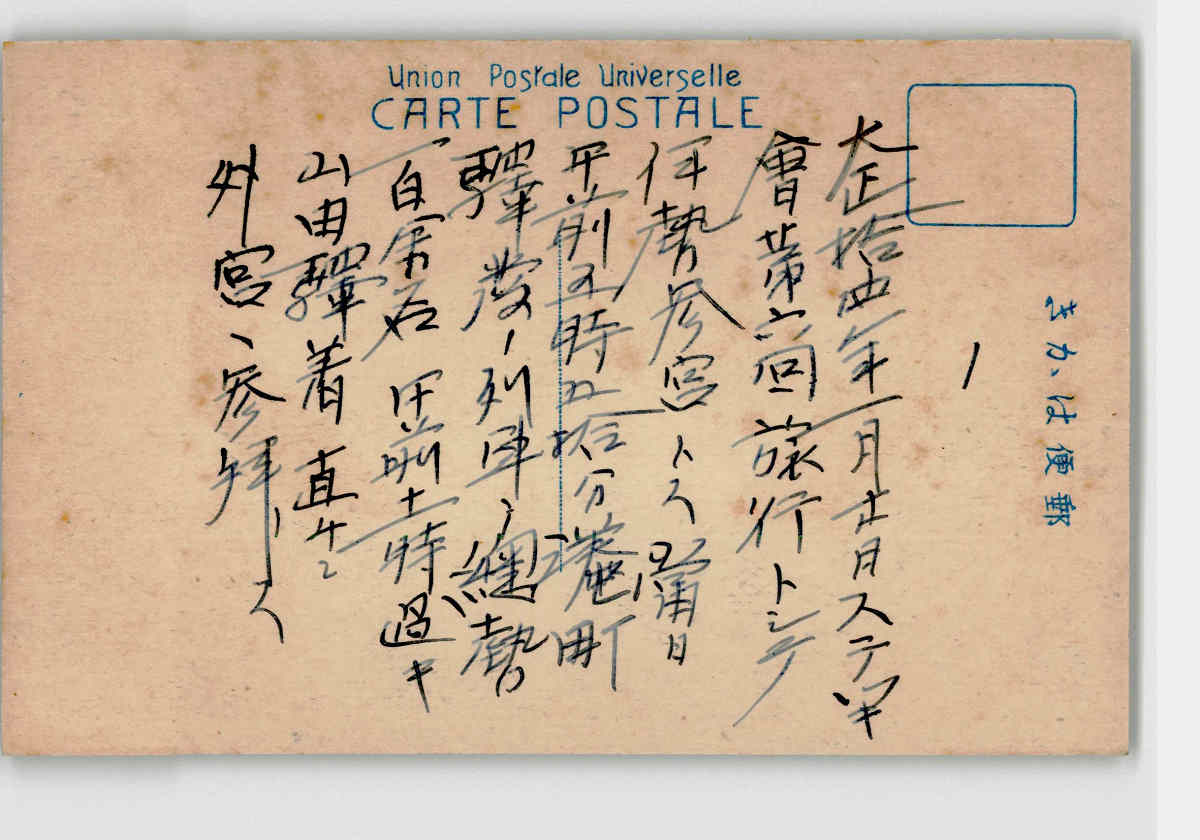 Union Postale Universelle
CARTE POSTALE
きかは便郵
1
大正拾四年一月廿日ステッキ
會第六回旅行トシテ
伊勢参宮トス 當日
午前五時五拾分 町
驛發ノ列車ニ 勢
一百名 午前十一時過キ
山田驛着 直チニ
外宮ヘ参拜ス